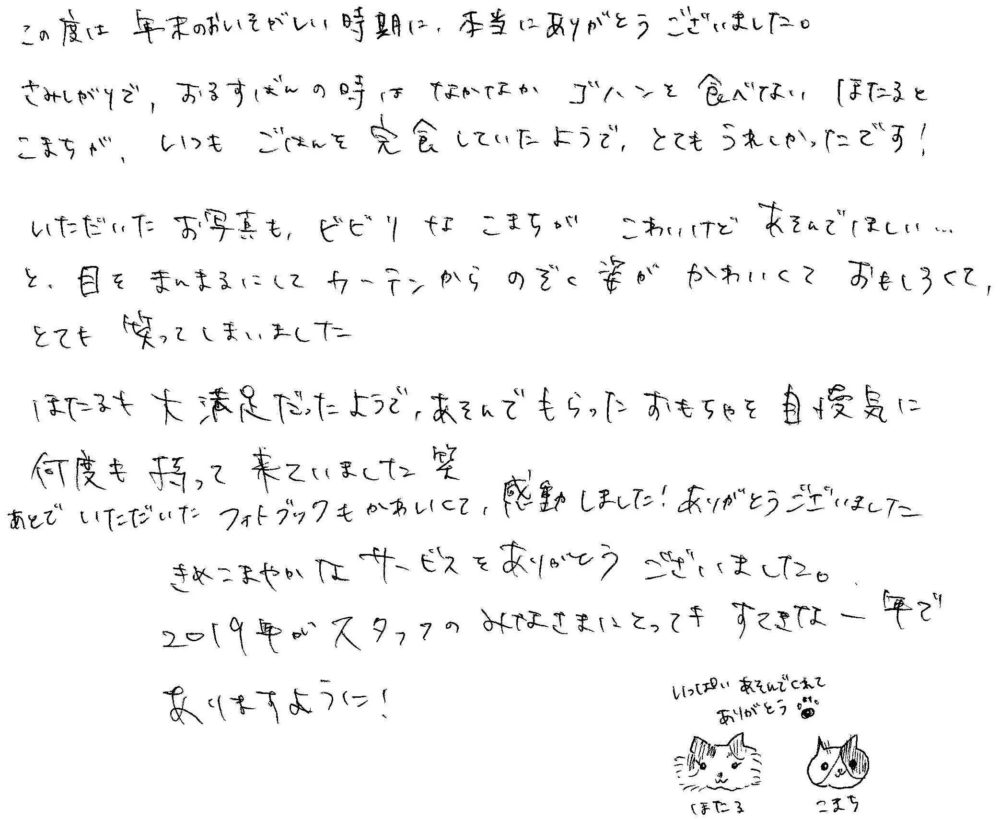 この度は 年末のおいそがしい時期に、本当にありがとうございました。
さみしがりで、おるすばんの時は なかなか ゴハンを食べない ほたると
こまちが、いつも ごはんを完食していたようで、とてもうれしかったです!
いただいた お写真も、ビビリな こまちが こわいけど あそんでほしい…
と、目をまんまるにしてカーテンから のぞく姿が かわいくて おもしろくて、
とても 笑ってしまいました
ほたるも 大満足だったようで、あそんでもらった おもちゃを自慢気に
何度も 持って来ていました 笑
あとで いただいた フォトブックもかわいくて、感動しました!ありがとうございました
きめこまやかな サービスをありがとう ございました。
2019年が スタッフの みなさまにとっても すてきな一年で
ありますように!
いっぱい あそんでくれて
ありがとう
ほたる こまち